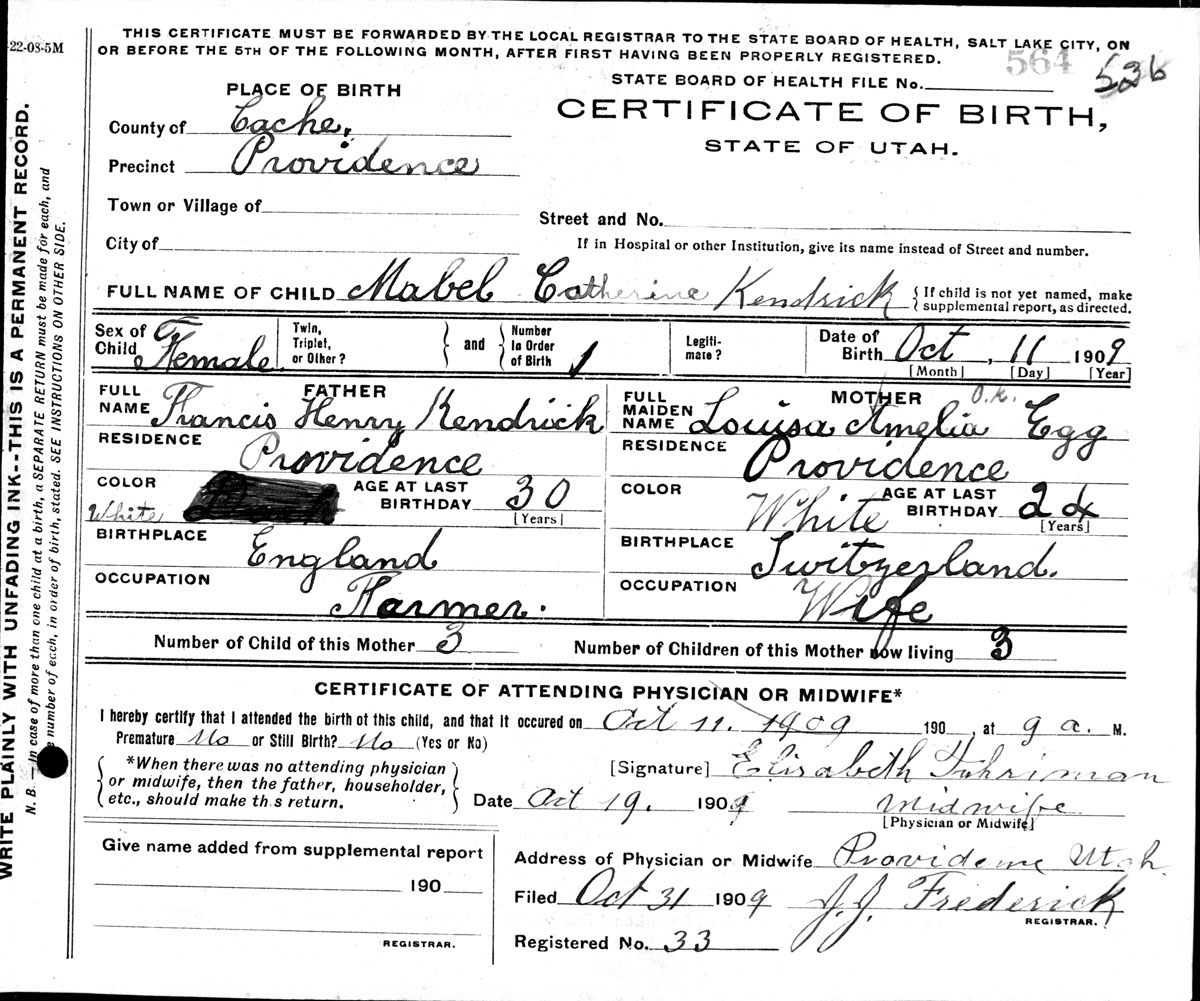 22-08-5M
THIS CERTIFICATE MUST BE FORWARDED BY THE LOCAL REGISTRAR TO THE STATE BOARD OF HEALTH, SALT LAKE CITY, ON
OR BEFORE THE 5TH OF THE FOLLOWING MONTH, AFTER FIRST HAVING BEEN PROPERLY REGISTERED.
564 536
STATE BOARD OF HEALTH FILE No.
PLACE OF BIRTH
CERTIFICATE OF BIRTH,
STATE OF UTAH.
County of Cache,
Precinct Providence
Town or Village of
Street and No.
City of
If in Hospital or other Institution, give its name instead of Street and number.
FULL NAME OF CHILD Mabel Catherine Kendrick { If child is not yet named, make
supplemental report, as directed.
Sex of Child Female
Twin, Triplet, or Other?
} and {
Number In Order of Birth 1
Legiti-mate?
Date of Birth Oct, 11 1909
[Month] [Day] [Year]
FATHER
FULL NAME Francis Henry Kendrick
RESIDENCE
Providence
COLOR White
AGE AT LAST BIRTHDAY 30
[Years]
BIRTHPLACE
England
OCCUPATION
Farmer.
MOTHER O.K.
FULL MAIDEN NAME Louisa Amelia Egg
RESIDENCE
Providence
COLOR White
AGE AT LAST BIRTHDAY 24
[Years]
BIRTHPLACE
Switzerland.
OCCUPATION
Wife
Number of Child of this Mother 3
Number of Children of this Mother now living 3
CERTIFICATE OF ATTENDING PHYSICIAN OR MIDWIFE*
I hereby certify that I attended the birth of this child, and that it occured on Oct 11. 1909 190 , at 9 a. M.
Premature No or Still Birth? No (Yes or No)
*When there was no attending physician
or midwife, then the father, householder,
etc., should make this return.
[Signature] Elisabeth Fuhriman
Date Oct 19. 1909
Midwife
[Physician or Midwife]
Give name added from supplemental report
190
REGISTRAR.
Address of Physician or Midwife Providence Utah.
Filed Oct 31 1909 J. J. Frederick
REGISTRAR.
Registered No. 33
WRITE PLAINLY WITH UNFADING INK--THIS IS A PERMANENT RECORD.
N. B.—In case of more than one child at a birth, a SEPARATE RETURN must be made for each, and
number of each, in order of birth, stated. SEE INSTRUCTIONS ON OTHER SIDE.